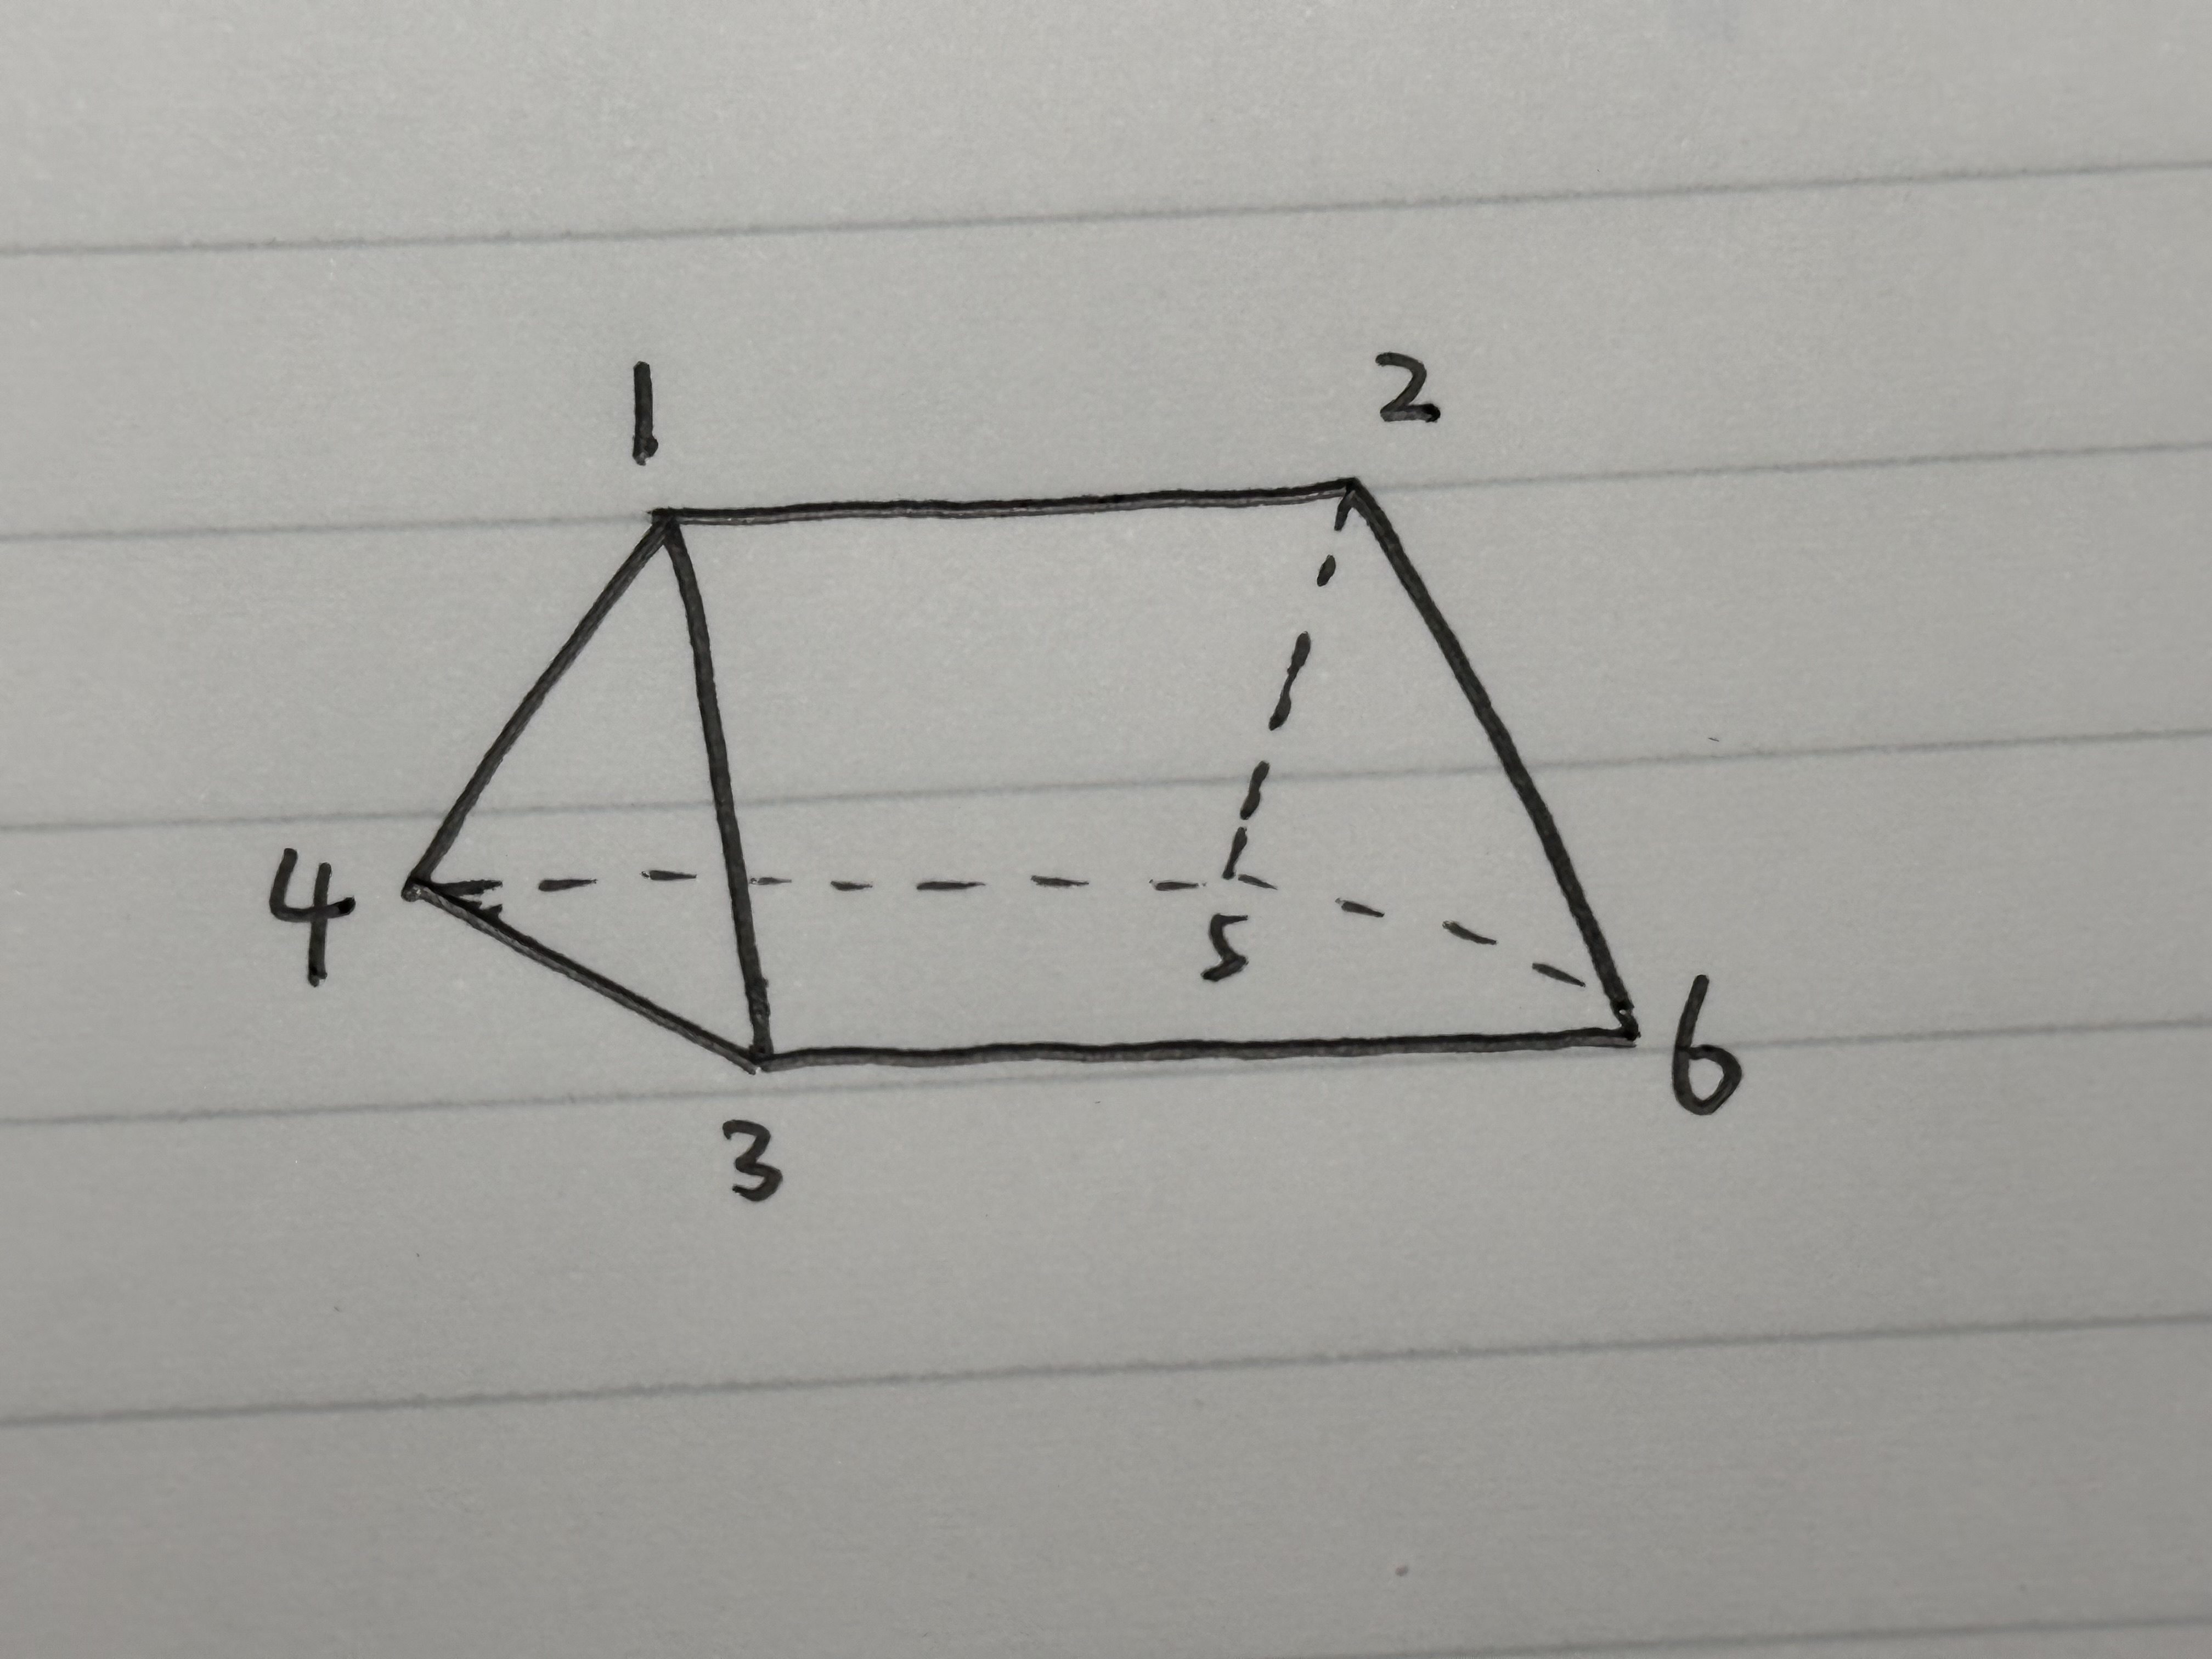 1 2
4 5 6
3